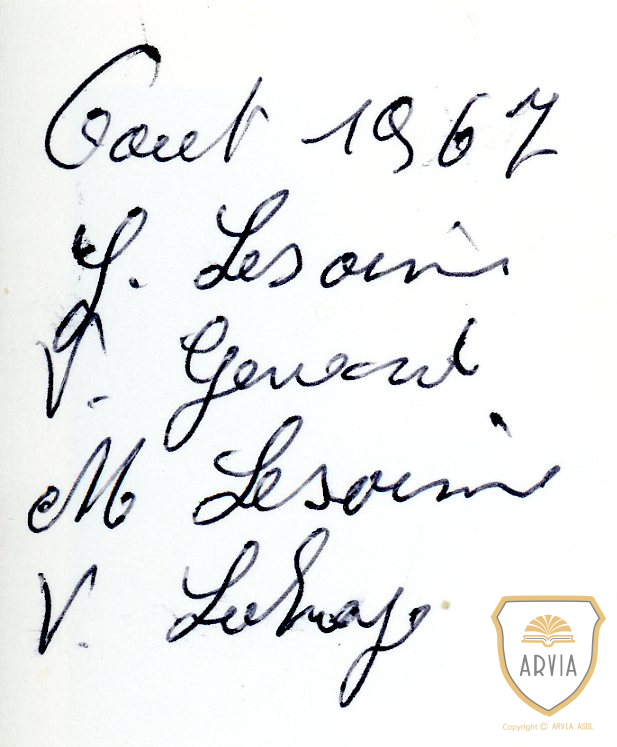 Août 1967
J. Lesoinne
V. Gerard
M Lesoinne
V.
ARVIA
Copyright © ARVIA ASBL